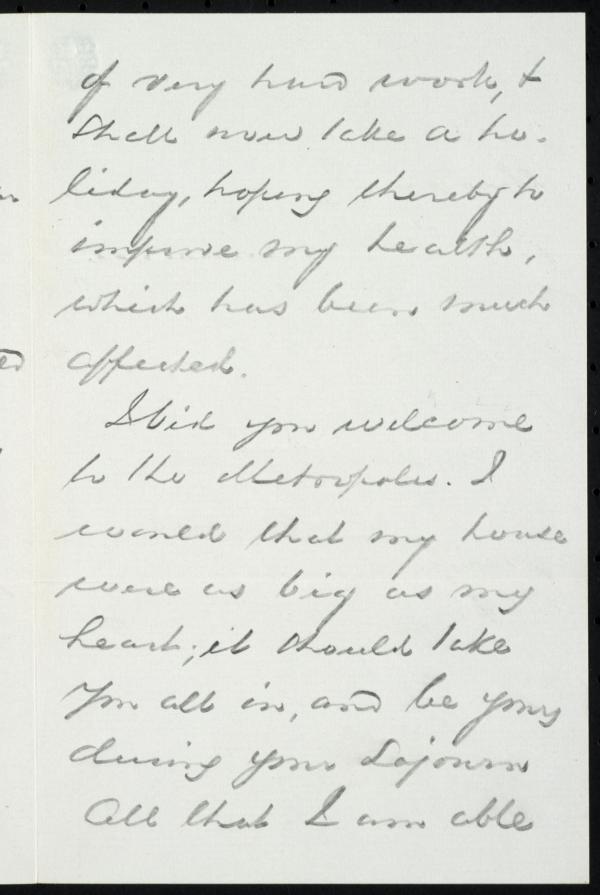 of very hard work, &
shall now take a ho-
liday, hoping thereby to
improve my health,
which has been much
affected.
I bid you welcome
to the Metropolis. I
would that my house
were as big as my
heart; it should take
you all in, and be yours
during your sojourn
All that I am able